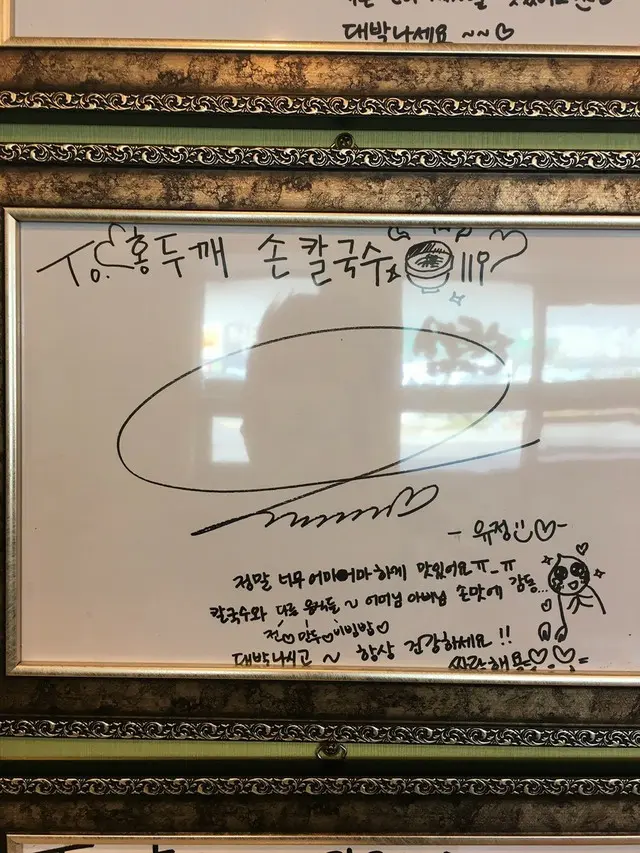 대박나세요 ~~♡
To. 홍두깨 손칼국수
- 유정 ♡-
정말 너무 어마어마하게 맛있어요ㅠ_ㅠ
칼국수와 다른 음식들 ~ 어머님 아버님 손맛에 감동...
전♡만두♡비빔밥♡
대박나시고 ~ 항상 건강하세요 !!
싸랑해용